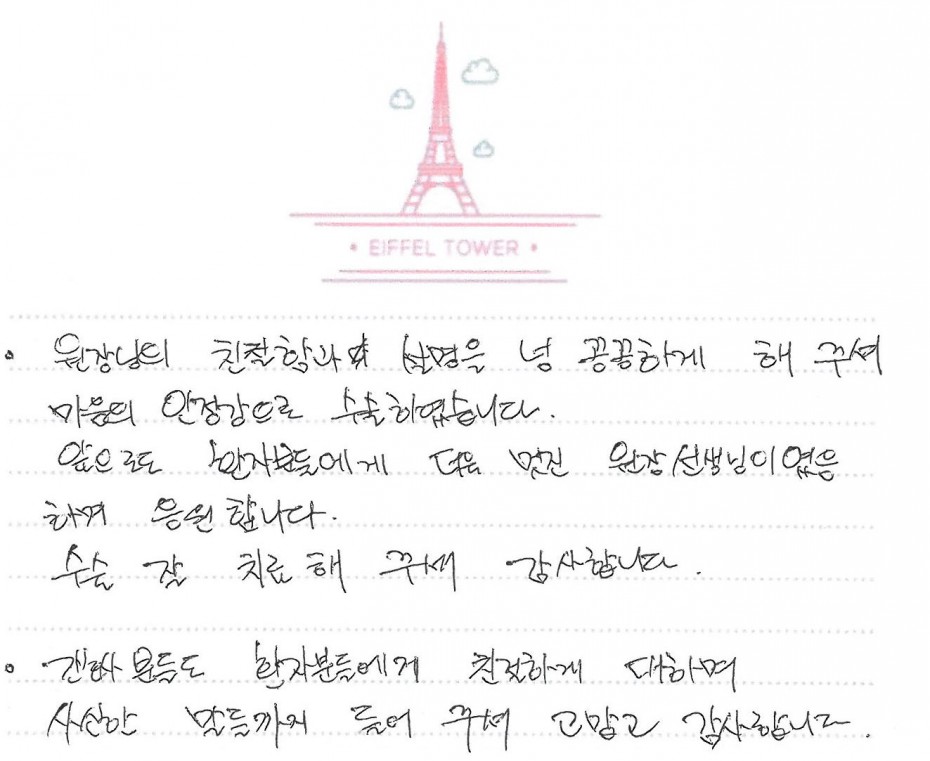 EIFFEL TOWER
• 원장님의 친절함과 설명을 넘 꼼꼼하게 해 주셔
마음의 안정감으로 수술하였습니다.
앞으로도 환자분들에게 더욱 멋진 원장선생님이였음
하며 응원합니다.
수술 잘 치료해 주셔 감사합니다.
• 간호사분들도 환자분들에게 친절하게 대하며
사소한 말들까지 들어 주셔 고맙고 감사합니다.